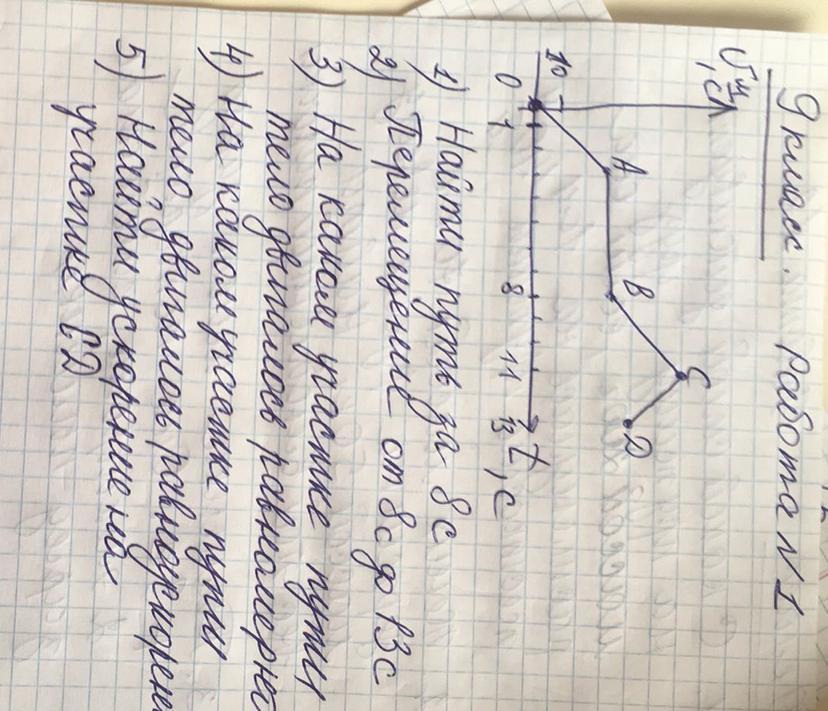 9 класс. Работа N 1
υ, м/с
A
B
C
D
10
0
1
8
11
13
t, с
1) Найти путь за 8с
2) Перемещение от 8с до 13с
3) На каком участке пути
тело двигалось равномерно
4) На каком участке пути
тело двигалось равноускорен
5) Найти ускорение на
участке CD